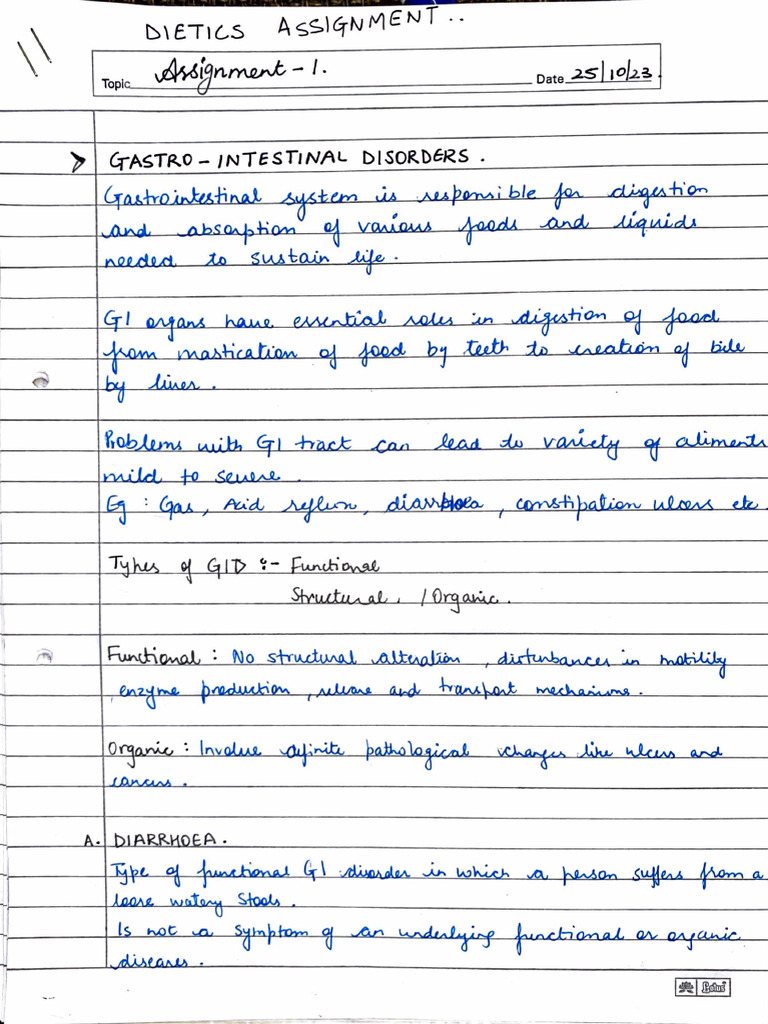 DIETICS ASSIGNMENT..
Topic Assignment - 1. Date 25/10/23.
GASTRO - INTESTINAL DISORDERS.
Gastrointestinal system is responsible for digestion
and absorption of various foods and liquids
needed to sustain life.
GI organs have essential roles in digestion of food
from mastication of food by teeth to creation of bile
by liver.
Problems with GI tract can lead to variety of aliments
mild to severe.
Eg : Gas, Acid reflux, diarrhoea, constipation ulcers etc.
Types of GID :- Functional
Structural. / Organic.
Functional : No structural alteration, disturbances in motility
, enzyme production, release and transport mechanisms.
Organic : Involve definite pathological changes like ulcers and
cancers.
A. DIARRHOEA.
Type of functional GI disorder in which a person suffers from a
loose watery stools.
Is not a symptom of an underlying functional or organic
diseases.
Lotus